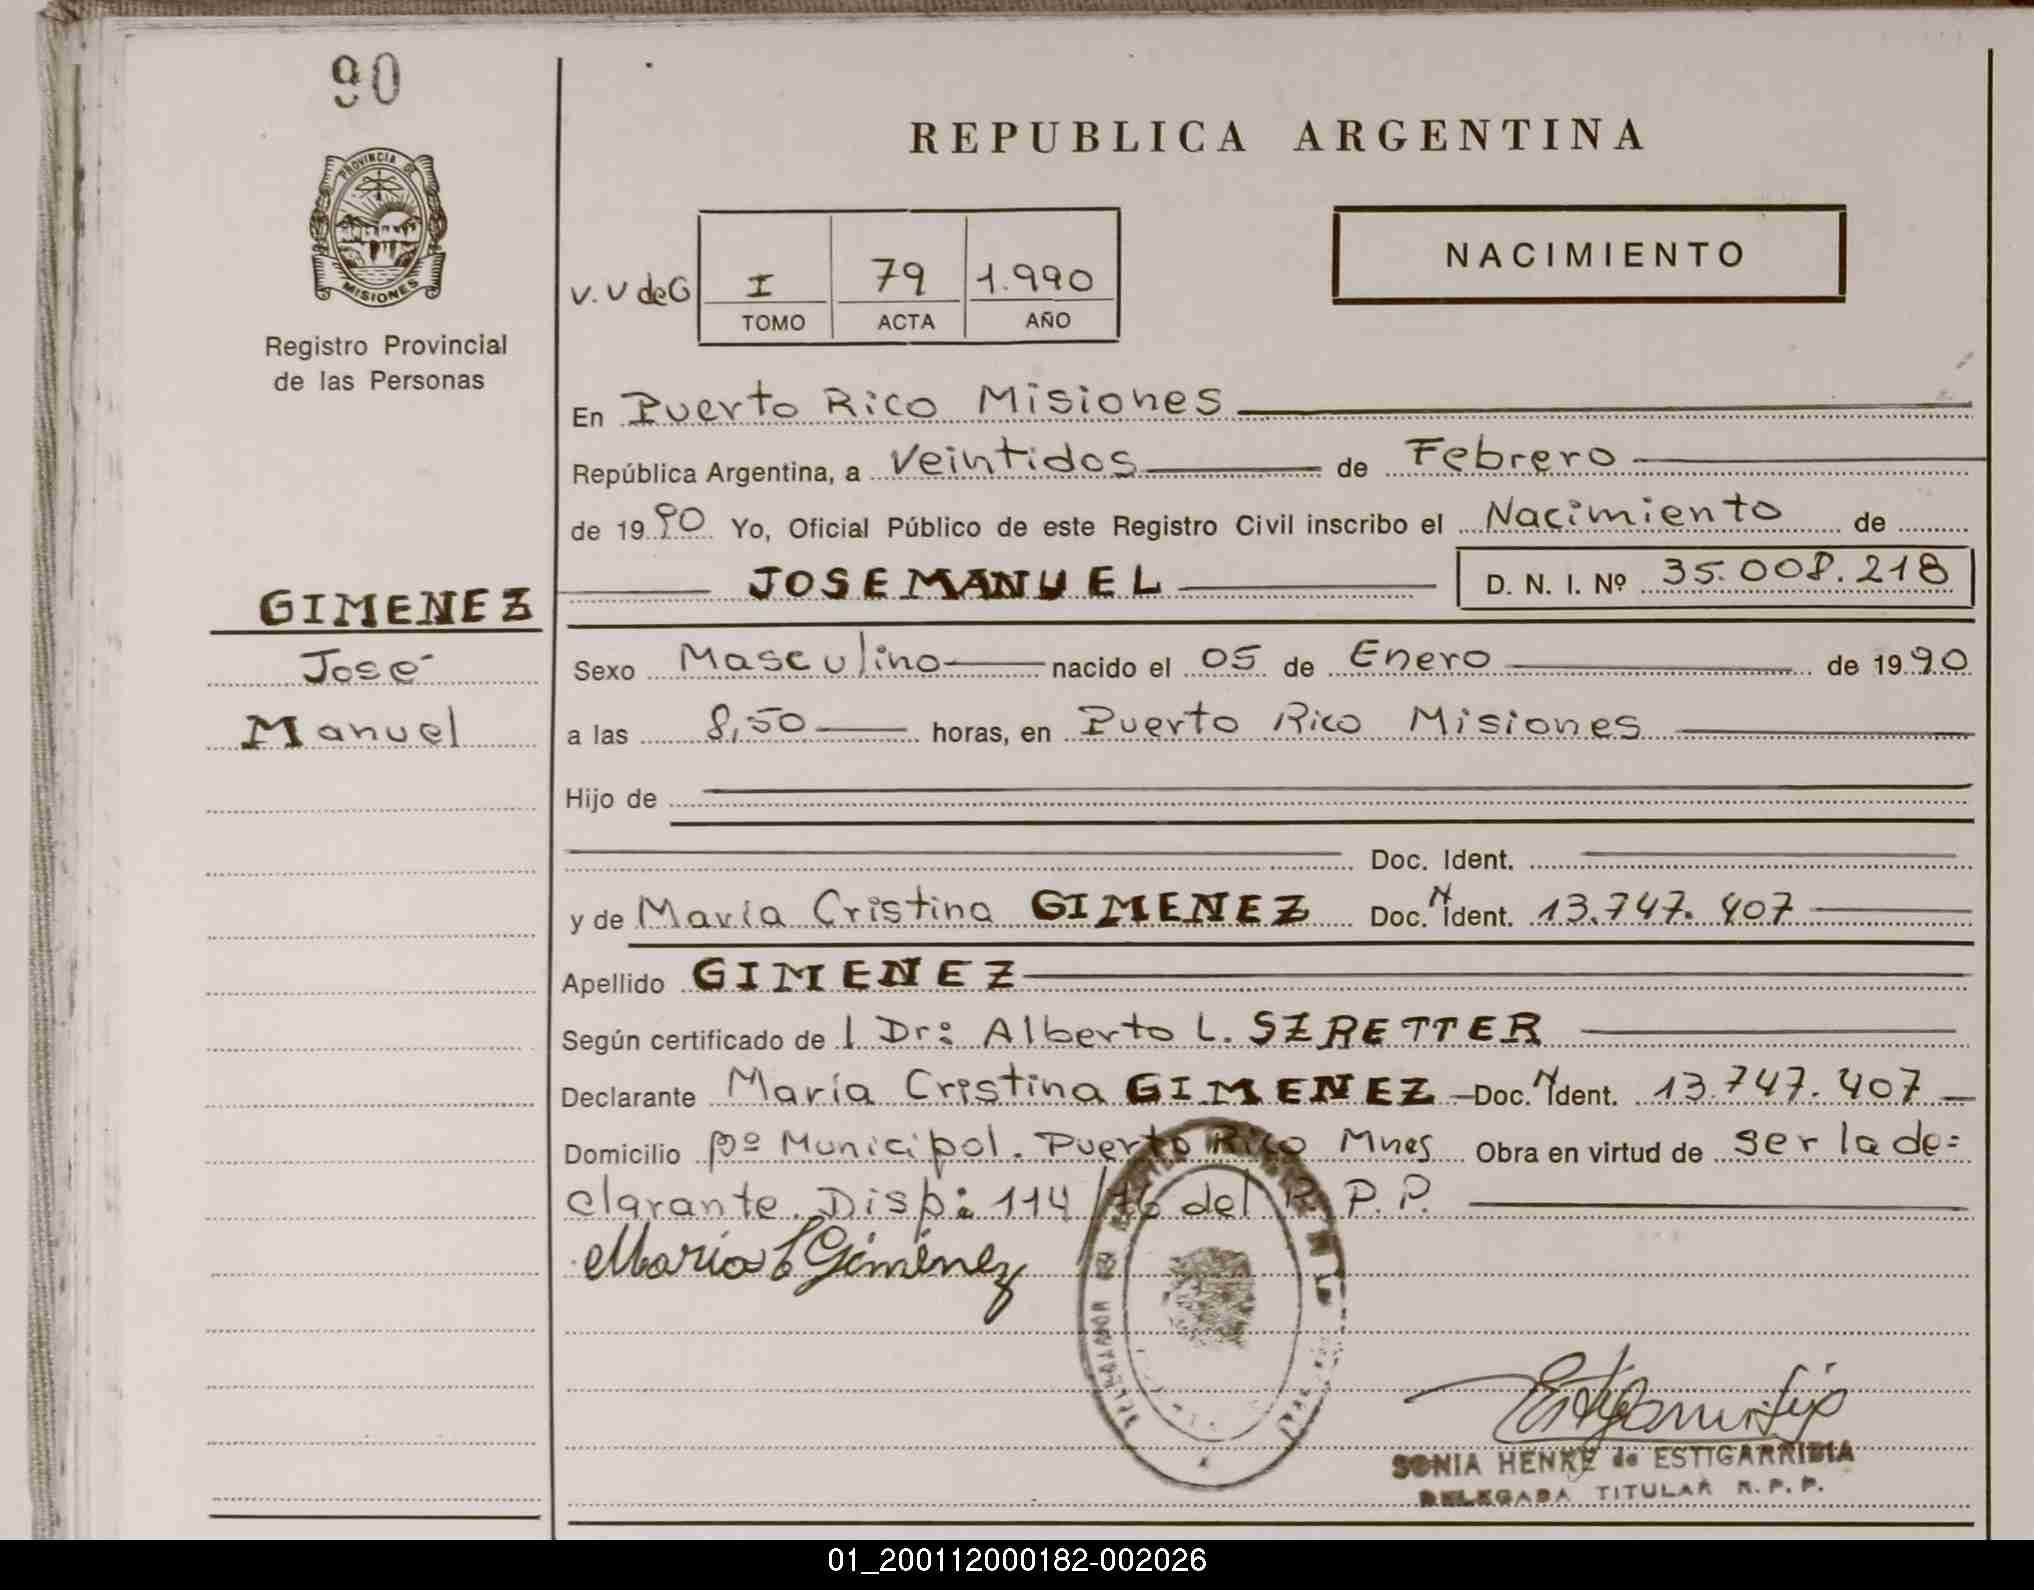 90
PROVINCIA DE
MISIONES
Registro Provincial
de las Personas
GIMENEZ
José
Manuel
REPUBLICA ARGENTINA
NACIMIENTO
V. V de G
I 79 1.990
TOMO ACTA AÑO
En Puerto Rico Misiones
República Argentina, a Veintidos de Febrero
de 1990 Yo, Oficial Público de este Registro Civil inscribo el Nacimiento de
JOSE MANUEL D. N. I. Nº 35.008.218
Sexo Masculino nacido el 05 de Enero de 1990
a las 8,50 horas, en Puerto Rico Misiones
Hijo de
Doc. Ident.
y de María Cristina GIMENEZ Doc. N Ident. 13.747.407
Apellido GIMENEZ
Según certificado de l Dr: Alberto L. SZRETTER
Declarante María Cristina GIMENEZ Doc. N Ident. 13.747.407
Domicilio Bº Municipal. Puerto Rico Mnes Obra en virtud de ser la de=
clarante. Disp: 114/76 del R.P.P.
María C Giménez
SONIA HENKE de ESTIGARRIBIA
DELEGADA TITULAR R. P. P.
01_200112000182-002026